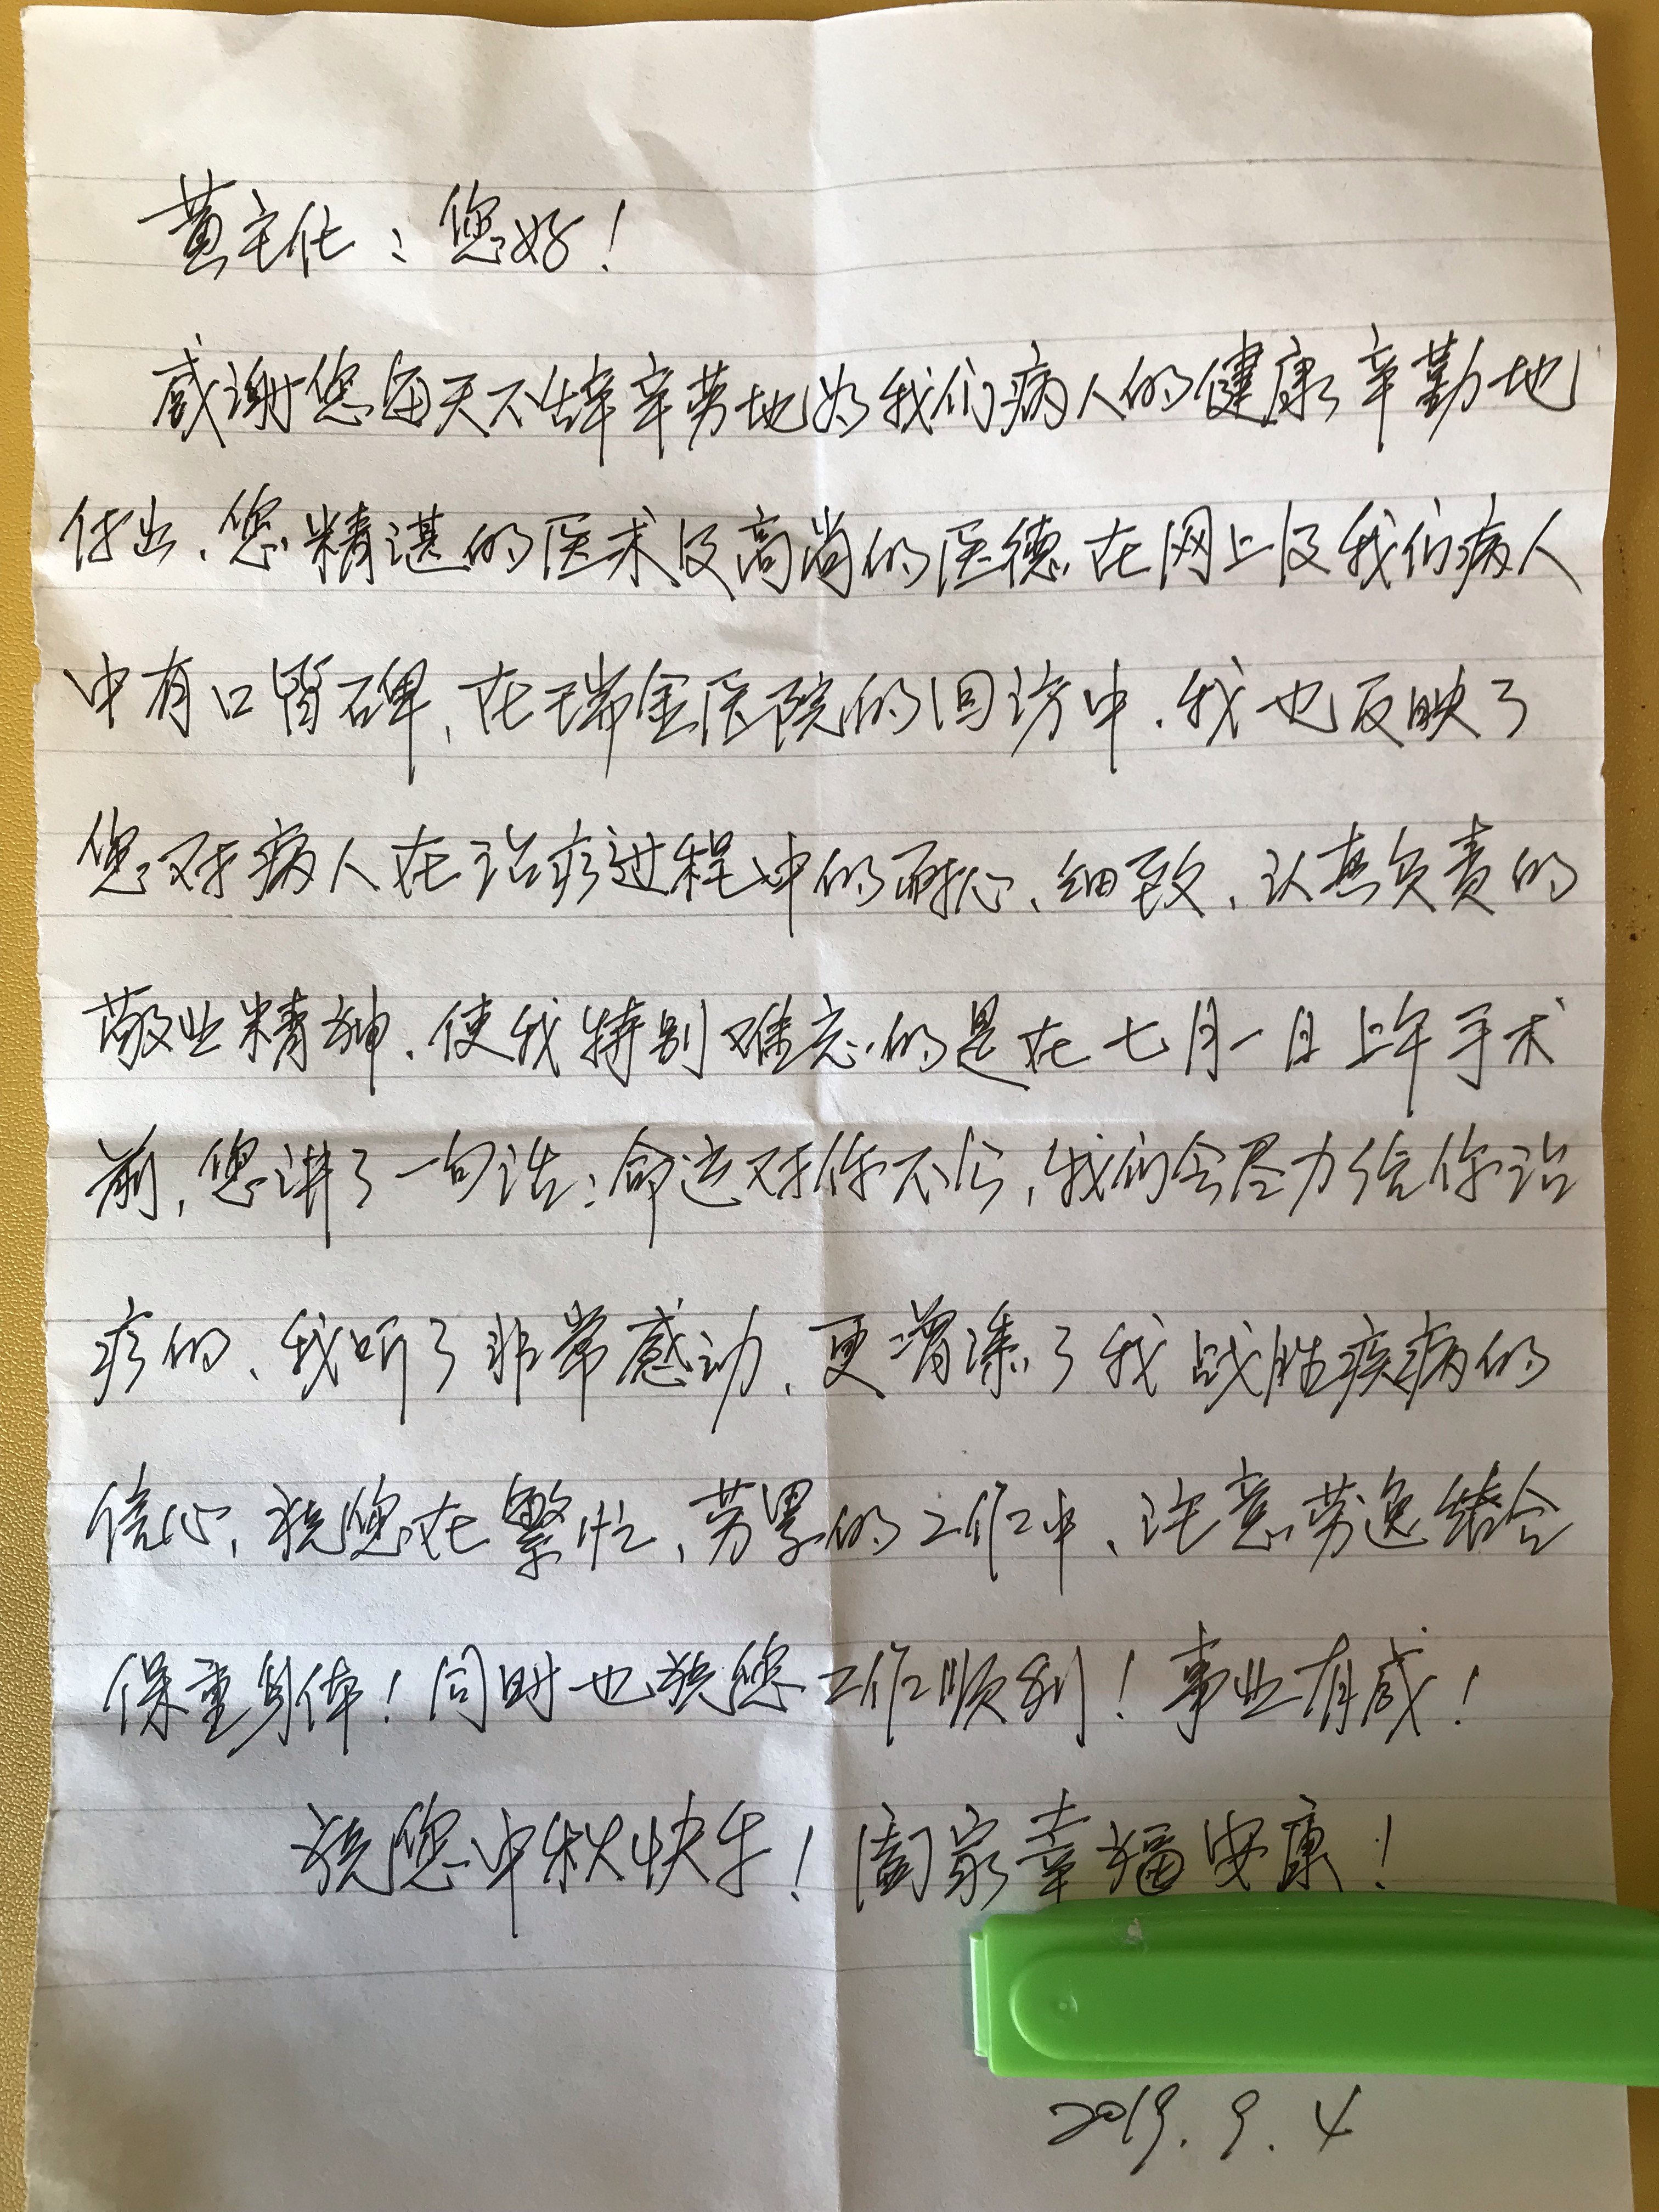 黄主任：您好！
感谢您每天不辞辛劳地为我们病人的健康辛勤地
付出、您精湛的医术及高尚的医德在网上及我们病人
中有口皆碑，在瑞金医院的回访中，我也反映了
您对病人在治疗过程中的耐心、细致、认真负责的
敬业精神，使我特别难忘的是在七月一日上午手术
前，您讲了一句话：命运对你不公，我们会尽力给你治
疗的、我听了非常感动，更增添了我战胜疾病的
信心，祝您在繁忙、劳累的工作中、注意劳逸结合
保重身体！同时也祝您工作顺利！事业有成！
祝您中秋快乐！阖家幸福安康！
2019.9.4